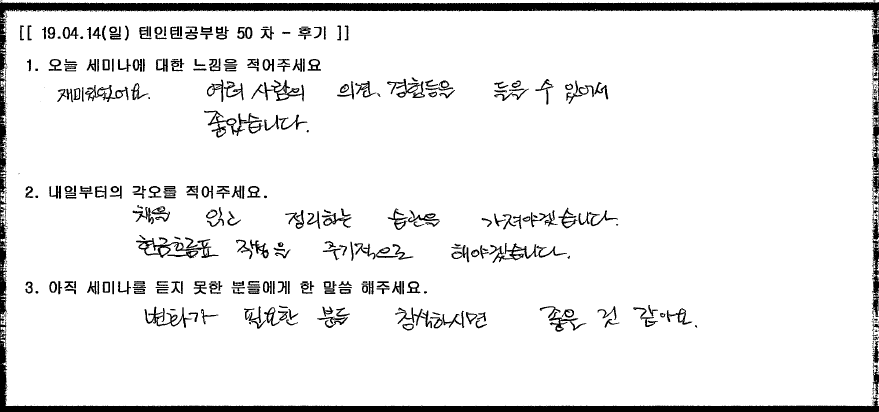 [[ 19.04.14(일) 텐인텐공부방 50 차 - 후기 ]]
1. 오늘 세미나에 대한 느낌을 적어주세요
재미있었어요. 여러 사람의 의견, 경험등을 들을 수 있어서
좋았습니다.
2. 내일부터의 각오를 적어주세요.
책을 읽고 정리하는 습관을 가져야겠습니다.
현금흐름표 작성을 주기적으로 해야겠습니다.
3. 아직 세미나를 듣지 못한 분들에게 한 말씀 해주세요.
변화가 필요한 분들 참석하시면 좋을 것 같아요.